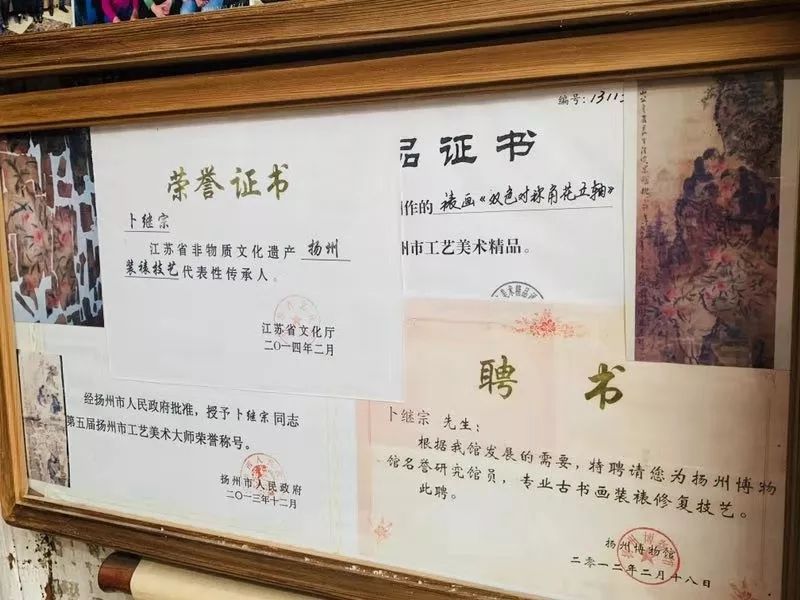 荣誉证书
卜继宗
江苏省非物质文化遗产 扬州
装裱技艺代表性传承人。
江苏省文化厅
二〇一四年二月
编号:1311
品证书
作的 裱画《双色对称角花五轴》
州市工艺美术精品。
经扬州市人民政府批准，授予卜继宗同志
第五届扬州市工艺美术大师荣誉称号。
扬州市人民政府
二〇一三年十二月
聘书
卜继宗 先生：
根据我馆发展的需要，特聘请您为扬州博物
馆名誉研究馆员，专业古书画装裱修复技艺。
此聘。
扬州博物馆
二零一二年二月十八日